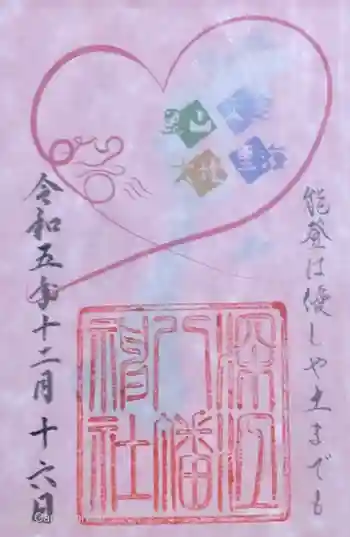 能登は優しや土までも
深江
八幡
神社
令和五年十二月十六日